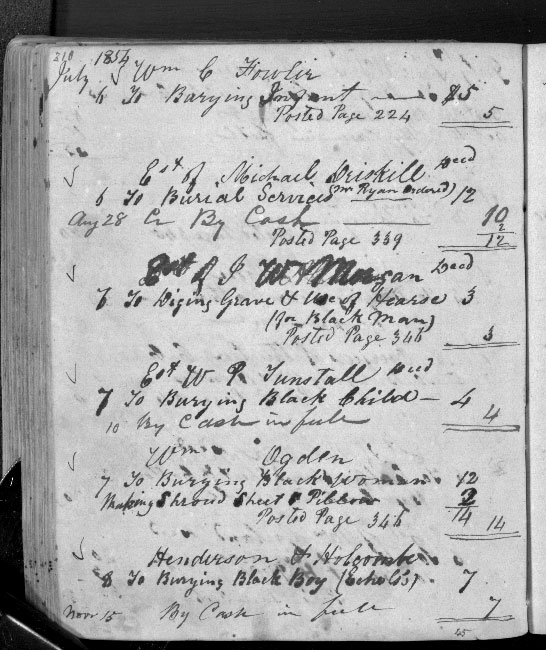 210 1854
July Wm C Fowler
6 To Burying Infant — $5
Posted Page 224 5
Est of Michael Driskill Decd
6 To Burial Services (Mr Ryan ordered) 12
Aug 28 Cr By Cash 10
2
Posted Page 339 12
Est of J W Morgan Decd
6 To Diging Grave & Use of Hearse 3
(for Black Man)
Posted Page 346 3
Est W P Tunstall Decd
7 To Burying Black Child — 4
10 By Cash in full 4
Wm Ogden
7 To Burying Black Woman 12
Making Shroud Sheet & Pillow 2
14
Posted Page 346 14
Henderson & Holcombe
8 To Burying Black Boy (Echols) 7
Novr 15 By Cash in full 7
45